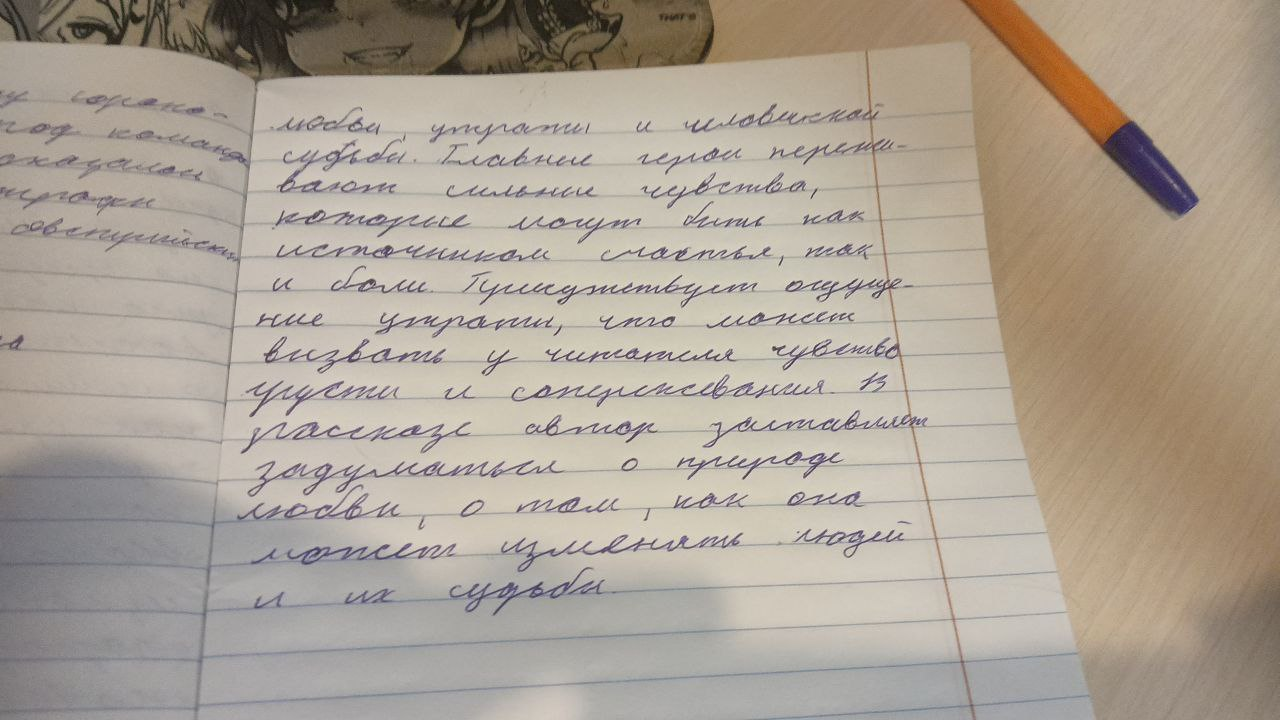 любви, утраты и человеческой
судьбы. Главные герои пережи-
вают сильные чувства,
которые могут быть как
источником счастья, так
и боли. Присутствует ощуще-
ние утраты, что может
вызвать у читателя чувство
грусти и сопереживания. В
рассказе автор заставляет
задуматься о природе
любви, о том, как она
может изменять людей
и их судьбы.
под команд
оказался
THAT'S